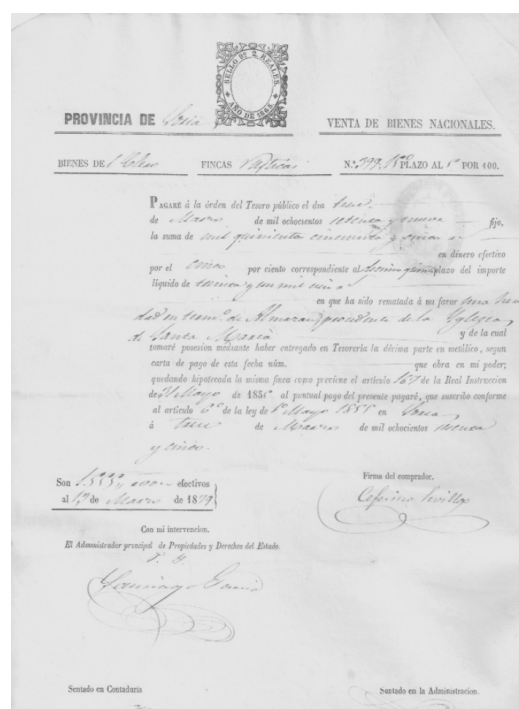 SELLO Nº 2. REALES.
AÑO DE 186
PROVINCIA DE Soria
VENTA DE BIENES NACIONALES.
BIENES DE Clero FINCAS Rústicas N.º 399. 15º PLAZO AL 5º POR 100.
PAGARÉ á la órden del Tesoro público el dia trece
de Marzo de mil ochocientos setenta y nueve fijo,
la suma de mil quinientos cincuenta y
en dinero efectivo
por el cinco por ciento correspondiente al décimo quinto plazo del importe
líquido de treinta y un mil
en que ha sido rematada á mi favor una heredad
en term. de Almazan, procedente de la Yglesia
de Santa María y de la cual
tomaré posesion mediante haber entregado en Tesorería la décima parte en metálico, segun
carta de pago de esta fecha núm. que obra en mi poder;
quedando hipotecada la misma finca como previene el artículo 167 de la Real Instruccion
de 31 Mayo de 1855 al puntual pago del presente pagaré, que suscribo conforme
al artículo 6º de la ley de 1º Mayo 1855 en Soria
á trece de Marzo de mil ochocientos sesenta
y cinco.
Son efectivos
al 13 de Marzo de 1879
Firma del comprador.
Ceferino
Con mi intervencion.
El Administrador principal de Propiedades y Derechos del Estado.
Santiago
Sentado en Contaduría
Sentado en la Administracion.